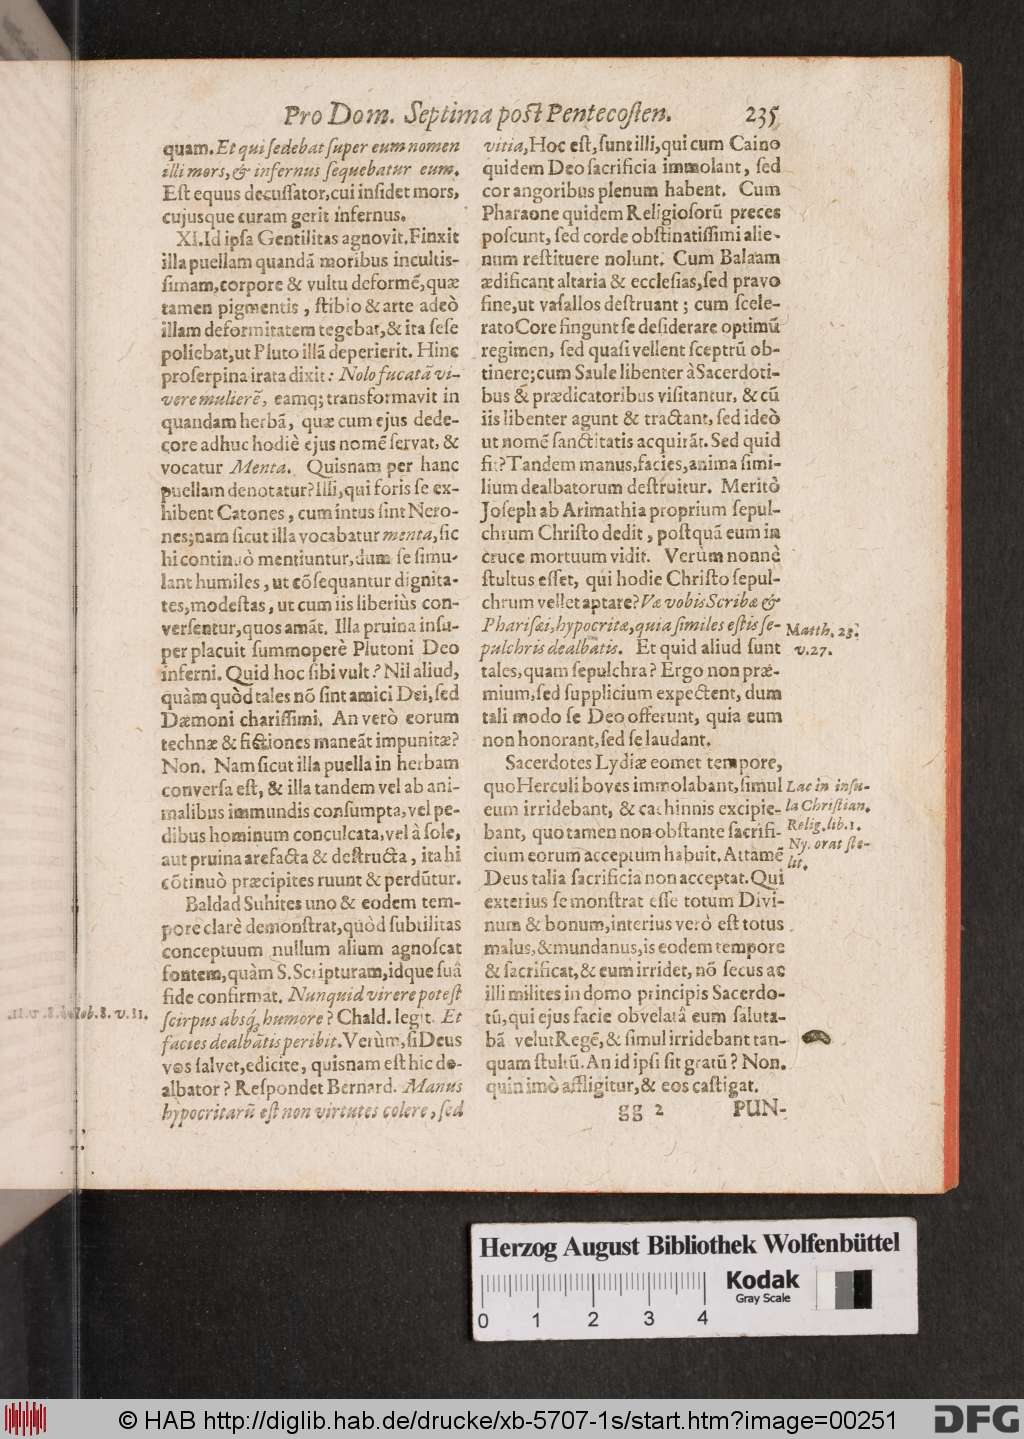 Pro Dom. Septima post Pentecosten. 235
quam. Et qui sedebat super eum nomen
illi mors, & infernus sequebatur eum.
Est equus decussator, cui insidet mors,
cujusque curam gerit infernus.
XI. Id ipsa Gentilitas agnovit. Finxit
illa puellam quandã moribus incultis-
simam, corpore & vultu deformẽ, quæ
tamen pigmentis, stibio & arte adeò
illam deformitatem tegebat, & ita sese
poliebat, ut Pluto illã deperierit. Hinc
proserpina irata dixit: Nolo fucatã vi-
vere mulierẽ, eamq; transformavit in
quandam herbã, quæ cum ejus dede-
core adhuc hodiè ejus nomẽ servat, &
vocatur Menta. Quisnam per hanc
puellam denotatur? Illi, qui foris se ex-
hibent Catones, cum intus sint Nero-
nes; nam sicut illa vocabatur menta, sic
hi continuò mentiuntur, dum se simu-
lant humiles, ut cõsequantur dignita-
tes, modestas, ut cum iis liberiùs con-
versentur, quos amãt. Illa pruina insu-
per placuit summoperè Plutoni Deo
inferni. Quid hoc sibi vult? Nil aliud,
quàm quòd tales nõ sint amici Dei, sed
Dæmoni charissimi. An verò eorum
technæ & fictiones maneãt impunitæ?
Non. Nam sicut illa puella in herbam
conversa est, & illa tandem vel ab ani-
malibus immundis consumpta, vel pe-
dibus hominum conculcata, vel à sole,
aut pruina arefacta & destructa, ita hi
cõtinuò præcipites ruunt & perdũtur.
Baldad Suhites uno & eodem tem-
pore clarè demonstrat, quòd subtilitas
conceptuum nullum alium agnoscat
fontem, quàm S. Scripturam, idque suâ
fide confirmat. Nunquid virere potest
scirpus absq; humore? Chald. legit. Et
Job. 8. v. 11.
facies dealbãtis peribit. Verùm, si Deus
vos salvet, edicite, quisnam est hic de-
albator? Respondet Bernard. Manus
hypocritarũ est non virtutes colere, sed
vitia, Hoc est, sunt illi, qui cum Caino
quidem Deo sacrificia immolant, sed
cor angoribus plenum habent. Cum
Pharaone quidem Religiosorũ preces
poscunt, sed corde obstinatissimi alie-
num restituere nolunt. Cum Balaam
ædificant altaria & ecclesias, sed pravo
fine, ut vasallos destruant; cum scele-
rato Core fingunt se desiderare optimũ
regimen, sed quasi vellent sceptrũ ob-
tinere; cum Saule libenter à Sacerdoti-
bus & prædicatoribus visitantur, & cũ
iis libenter agunt & tractant, sed ideò
ut nomẽ sanctitatis acquirãt. Sed quid
fit? Tandem manus, facies, anima simi-
lium dealbatorum destruitur. Meritò
Joseph ab Arimathia proprium sepul-
chrum Christo dedit, postquã eum in
cruce mortuum vidit. Verùm nonnè
stultus esset, qui hodie Christo sepul-
chrum vellet aptare? Væ vobis Scribæ &
Pharisæi, hypocritæ, quia similes estis se-
pulchris dealbatis. Et quid aliud sunt
Matth. 23.
v. 27.
tales, quam sepulchra? Ergo non præ-
mium, sed supplicium expectent, dum
tali modo se Deo offerunt, quia eum
non honorant, sed se laudant.
Sacerdotes Lydiæ eo met tempore,
quo Herculi boves immolabant, simul
eum irridebant, & cachinnis excipie-
bant, quo tamen non obstante sacrifi-
cium eorum acceptum habuit. Attamẽ
Lac in insu-
la Christian.
Relig. lib. 1.
Ny. orat ste-
lit.
Deus talia sacrificia non acceptat. Qui
exterius se monstrat esse totum Divi-
num & bonum, interius verò est totus
malus, & mundanus, is eodem tempore
& sacrificat, & eum irridet, nõ secus ac
illi milites in domo principis Sacerdo-
tũ, qui ejus facie obvelatâ eum saluta-
bã velut Regẽ, & simul irridebant tan-
quam stultũ. An id ipsi sit gratũ? Non.
quin imò affligitur, & eos castigat.
gg 2 PUN-
Herzog August Bibliothek Wolfenbüttel
Kodak
Gray Scale
0 1 2 3 4
© HAB http://diglib.hab.de/drucke/xb-5707-1s/start.htm?image=00251
DFG